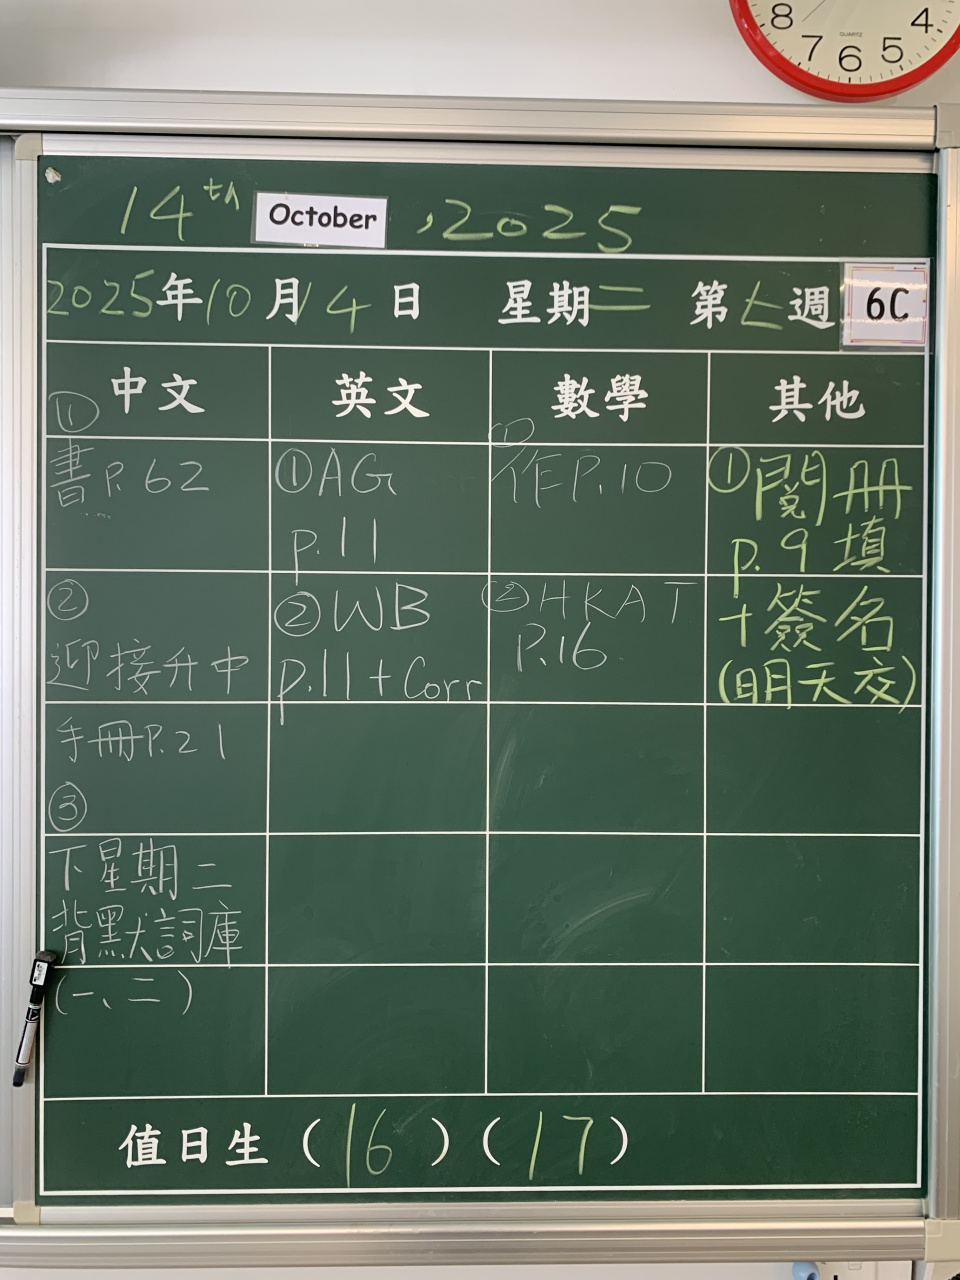 8 4
7 6 5
QUARTZ
14th October ,2025
2025年10月14日 星期二 第七週 6C
中文 英文 數學 其他
①
書P.62
②
迎接升中
手冊P.21
③
下星期二
背默詞庫
(一、二)
①AG
p.11
②WB
p.11+Corr
①
作P.10
②HKAT
P.16
①閱冊
p.9 填
+簽名
(明天交)
值日生 (16)(17)